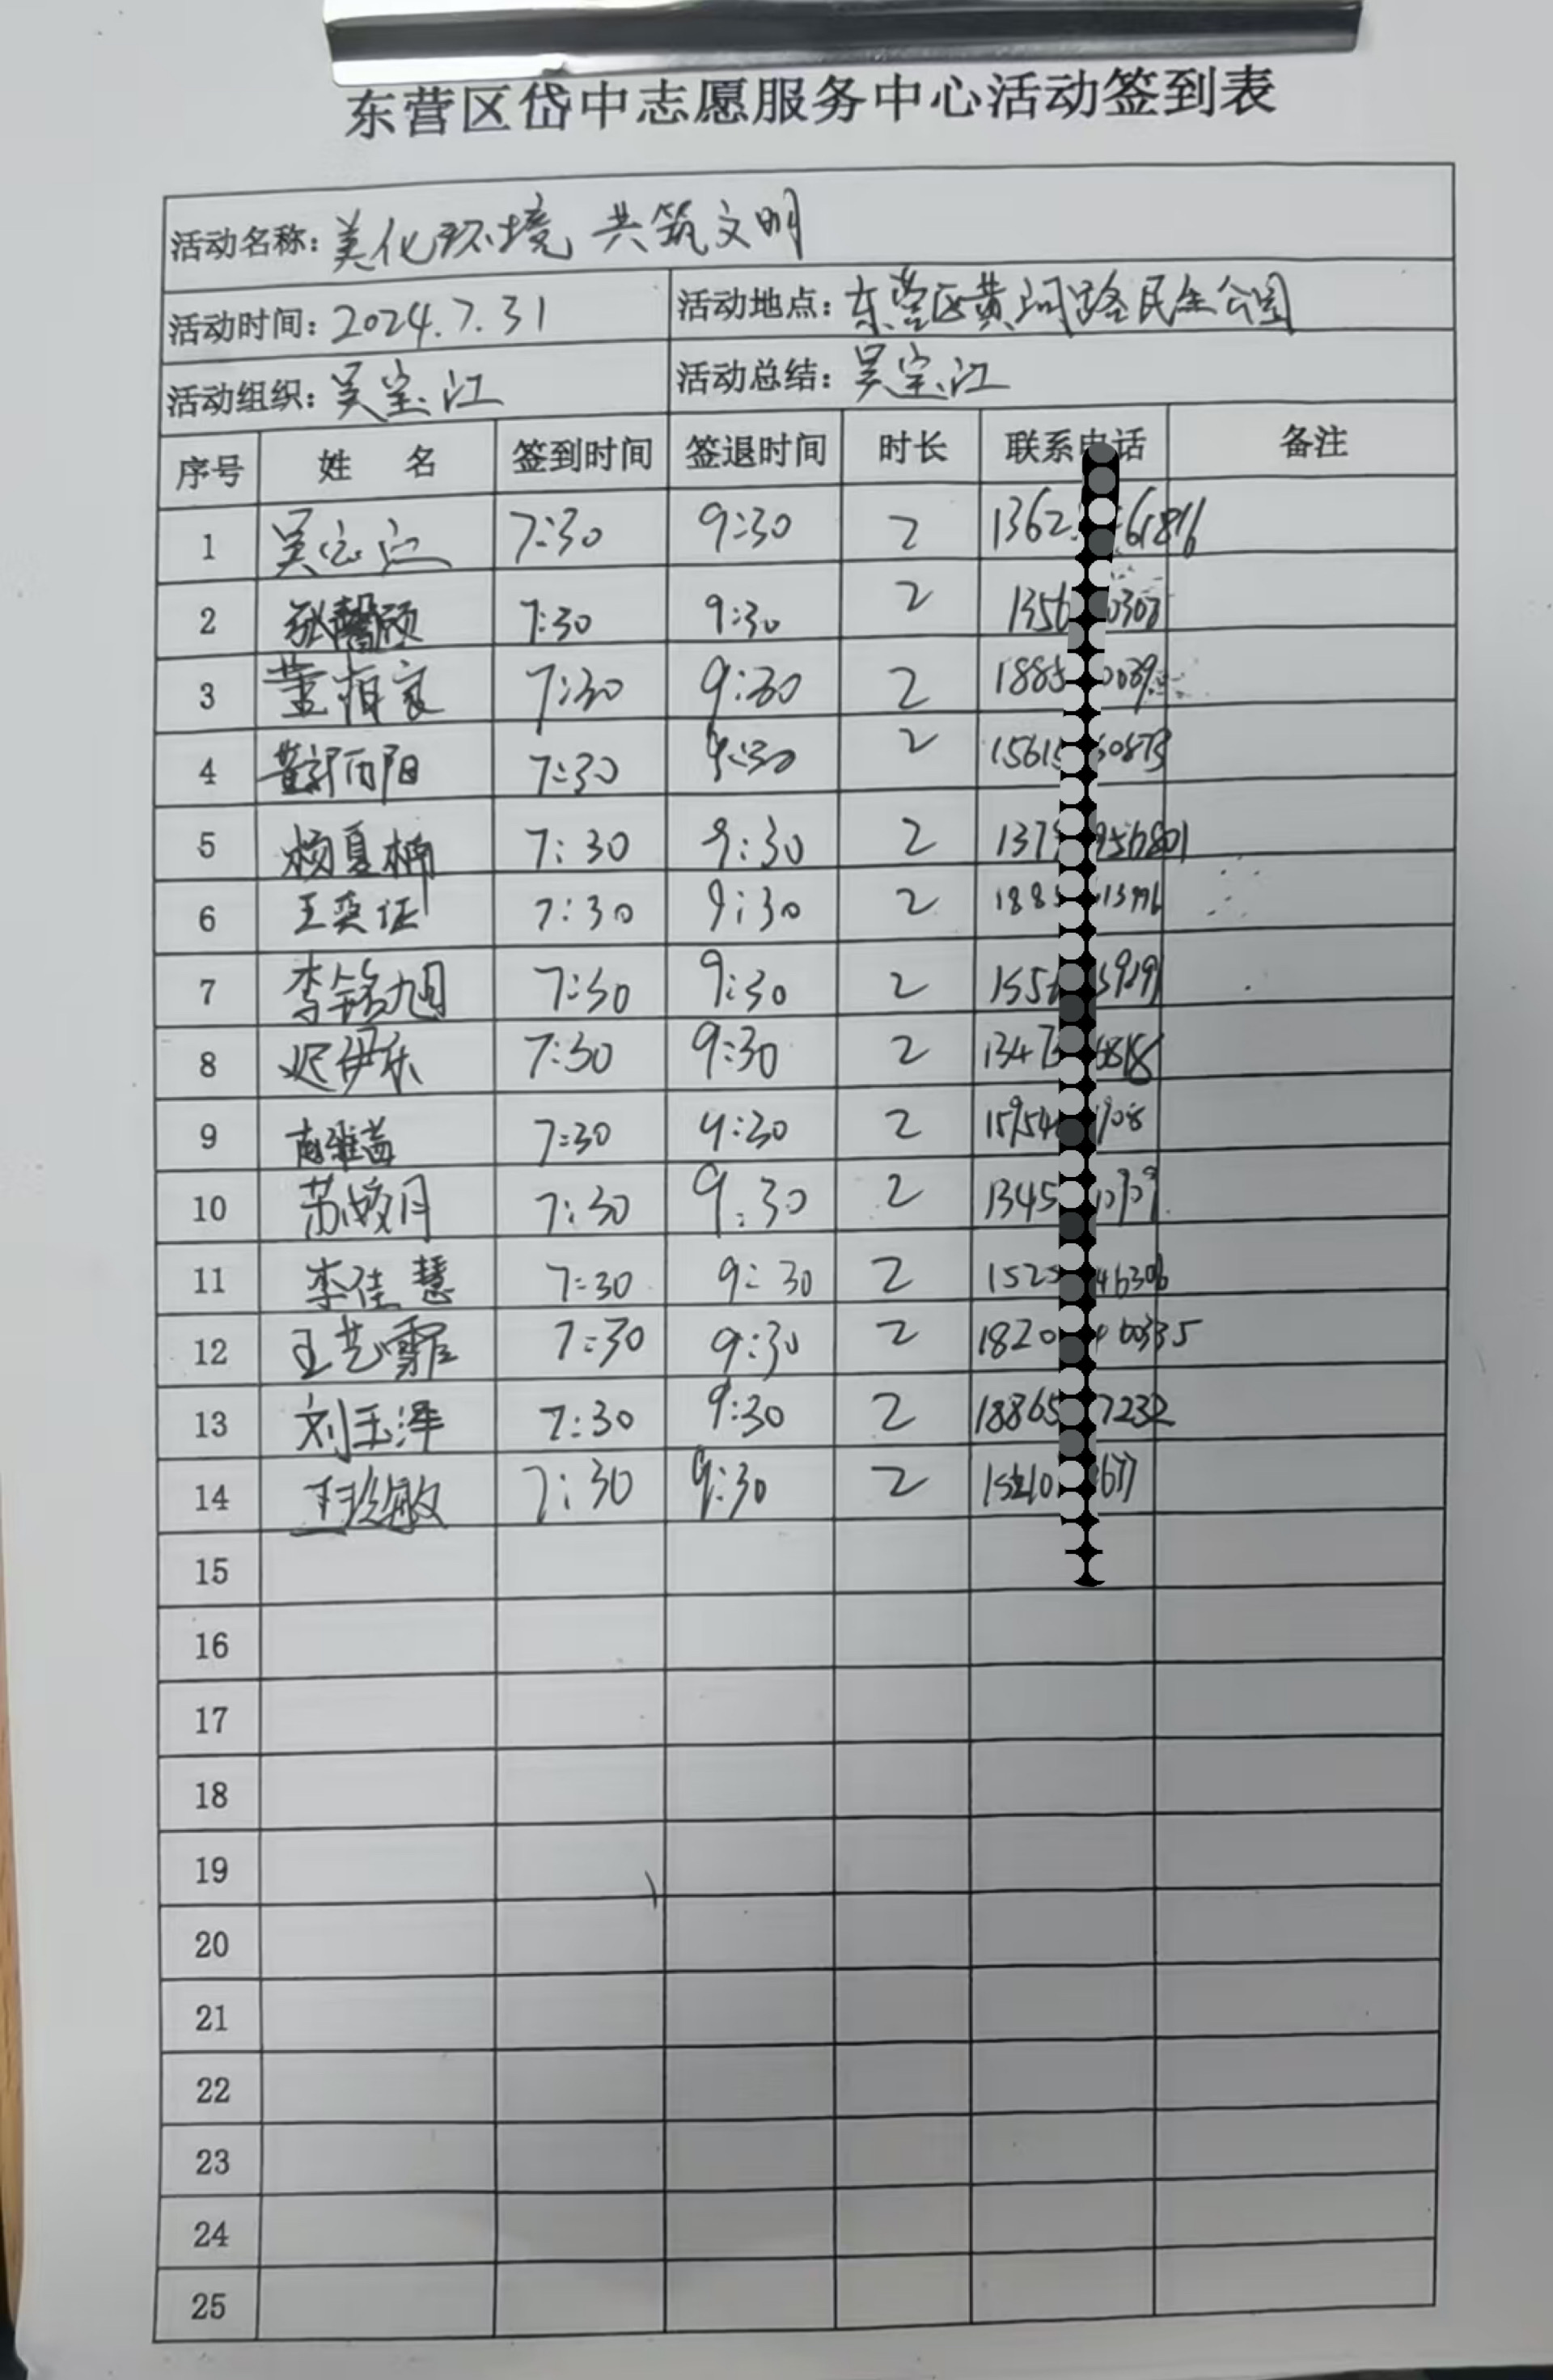 东营区岱中志愿服务中心活动签到表
活动名称：美化环境 共筑文明
活动时间：2024.7.31 活动地点：东营区黄河路民生公园
活动组织：吴宝江 活动总结：吴宝江
序号 姓 名 签到时间 签退时间 时长 联系电话 备注
1 7:30 9:30 2 1362 61816
2 7:30 9:30 2 1356 0307
3 7:30 9:30 2 1885 0039
4 7:30 9:30 2 1561 0873
5 杨夏楠 7:30 9:30 2 137 956801
6 王奕证 7:30 9:30 2 188 13996
7 李铭旭 7:30 9:30 2 155
8 迟伊乐 7:30 9:30 2 1347 6818
9 7:30 9:30 2 15954 908
10 苏皎月 7:30 9:30 2 1345
11 李佳慧 7:30 9:30 2 152 46306
12 王艺霏 7:30 9:30 2 1820 60335
13 刘玉泽 7:30 9:30 2 18865 7232
14 7:30 9:30 2 677
15
16
17
18
19
20
21
22
23
24
25